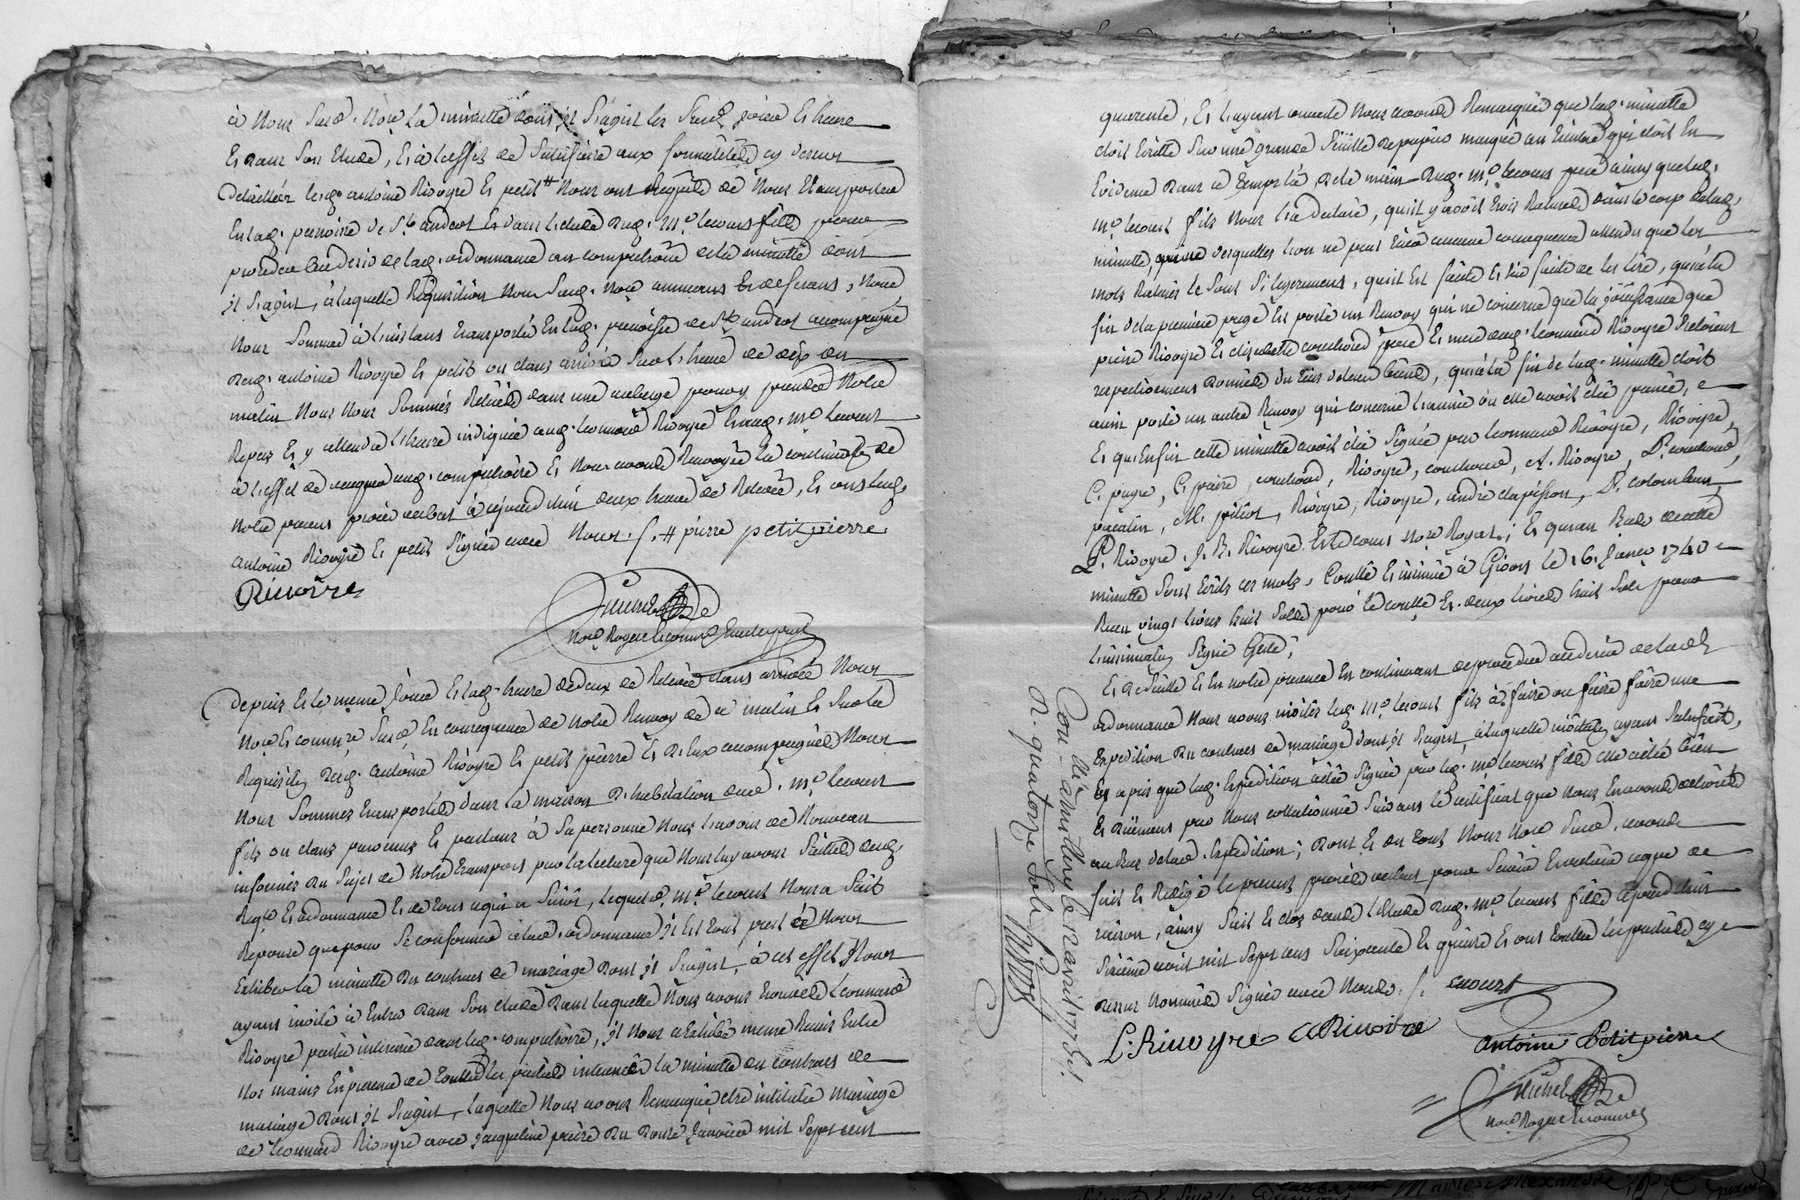 à nous susd. nore la minutte dont il s'agist les susd. jour et heure
et dans son etude, et à l'effet de satisfaire aux formalités cy dessus
detaillées led. antoine Rivoyre et petit nous ont Requis de nous transporter
en lad. parroisse de St andeol et dans l'etude dud. me lecourt fils pour
proceder au desir de lad. ordonnance au compulsoire de la minutte dont
il s'agist, à laquelle Requisition nous susd. nore
nous sommes à l'instant transporté en lad. parroisse de St andeol accompagné
dud. antoine Rivoyre et petit ou étans arrivé sur l'heure de dix du
matin nous nous sommes Retirés dans une auberge pour y prendre notre
Repas et y attendre l'heure indiquée aud. leonnard Rivoyre et aud. me lecourt
à l'effet de aud. compulsoire et nous avons Renvoyée la continuation de
notre present procès verbal à cejourd'huy deux heures de Relevée, et ont led.
antoine Rivoyre et petit signé avec nous. /. # pierre petitpierre
Rivoire
nore Royal
Depuis et le meme jour et lad. heure de deux de Relevée etans arrivée nous
nore et commre susd. en consequence de notre Renvoy de ce matin et sur la
Requisition dud. antoine Rivoyre et petit pierre et d'eux accompagnés nous
nous sommes transportés dans la maison d'habitation dud. me lecourt
fils ou étans parvenus et parlans à sa personne nous l'avons de nouveau
informés du sujet de notre transport par la lecture que nous luy avons faitte desd.
Reqte et ordonnance et de tout ce qui a suivi, lequel d. me lecourt nous a fait
Reponse que pour se conformer à lad. ordonnance il est tout prest de nous
exhiber la minutte du contract de mariage dont il s'agist, à cet effet nous
ayant invité à entrer dans son etude dans laquelle nous avons trouvé Leonnard
Rivoyre partie interessée aud. compulsoire, il nous a exhibée meme Remis entre
nos mains en presence de touttes les parties interessées la minutte du contract de
mariage dont il s'agist, laquelle nous avons Remarquée etre intitulée mariage
de leonnard Rivoyre avec jacqueline priere du douse Janvier mil sept cent
quarente, et l'ayant nous avons Remarquée que lad. minutte
étoit écritte sur une grande feuille de papier marqué au timbre qui étoit en
évidence dans ce temps là de la main dud. me lecourt père ainsy que led.
me lecourt fils nous l'a declaré, qu'il y avoit trois Raturés dans le corps de lad.
minutte, desquelles l'on ne peut tirer aucune consequence attendu que les
mots Raturés le sont si legerement, qu'il est facile et très facile de les lire, qu'à la
fin de la première page est porté un Renvoy qui ne concerne que la jouissance que
pierre Rivoyre et elizabeth couchoud père et mere dud. leonnard Rivoyre
respectivement du tiers de leurs biens, qu'à la fin de lad. minutte étoit
aussi porté un autre Renvoy qui concerne l'année où elle avoit été passée,
et qu'enfin cette minutte avoit été signée par leonnard Rivoyre, Rivoyre,
C. payre, C. priere, couchoud, Rivoyre, couchoud, A. Rivoyre, P. couchoud,
M. piliot, Rivoyre, Rivoyre, andré clapisson, P. colombet,
P. Rivoyre, J. B. Rivoyre. Et lecourt nore Royal; et qu'au Bas de cette
minutte sont écrits ces mots, Controllé et insinué à Givors le 16. Janer 1740
Receu vingt livres huit sols pour le controlle et deux livres huit sols pour
l'insinuation signé Gesté;
Et de suitte et en notre presence en continuant de proceder au desir de lad.
ordonnance nous avons invité led. me lecourt fils à faire ou faire faire une
expedition du contract de mariage dont il s'agist, à laquelle invitation ayant satisfait,
et après que lad. expedition a été signée par led. me lecourt fils elle a été bien
et duement par nous collationnée suivant le certificat que nous en avons delivré
au bas de lad. expedition; dont et du tout nous nore susd. avons
fait et Redigé le present procès verbal pour servir et valoir ce que de
raison, ainsy fait et clos dans l'etude dud. me lecourt fils cejourd'huy
sixième avril mil sept cent soixante et quinse et ont touttes les parties cy
dessus nommés signé avec nous. /. Lecourt
L. Rivoyre A Rivoire
antoine Petitpierre
nore Royal
Con. lé à mill le 12 avril 1775.
R. quatorze sols